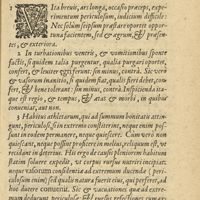 1 Vita brevis, ars longa, occasio præceps, expe-
rimentum periculosum, iudicium difficile:
Nec solùm seipsum præstare oportet opportu
tuna facientem, sed & ægrum, & præsen-
tes, & exteriora.
2 In turbationibus ventris, & vomitionibus sponte
factis, si quidem talia purgentur, qualia purgari oportet,
confert, & leuiter ferunt: sin minus, contrà. Sic verò
& vasorum inanitio, si quidem fiat, qualis fieri debet,
fert, & benè tolerant: sin minus, contrà. Inspicienda ita-
que est regio, & tempus, & ætas & morbi, in quibus
conueniat, aut non.
3 Habitus athletarum, qui ad summum bonitatis attin-
gunt, periculosi, si in extremo constiterint, neque enim pos-
sunt in eodem permanere, neque quiescere. Cùm verò non
quiescant, neque possint proficere in melius, reliquum est, vt
recidant in deterius. His ergo de causis plenitudinem habitum
statim soluere expedit, vt corpus rursus nutriri incipiat:
neque vasorum considentia ad extremum ducenda,
periculosum enim: sed qualis natura fuerit eius, qui perferet, ad
hoc ducere conuenit. Sic & vacuationes quæ ad extre-
mum deducunt, periculosæ: & rursus refectiones cum ex-